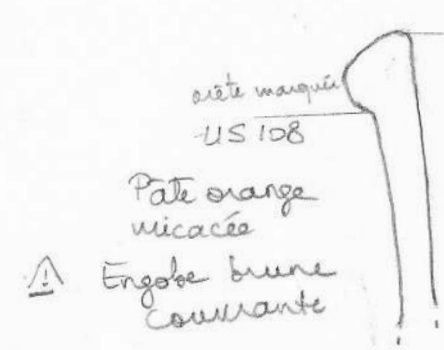 arête marquée
US 108
Pâte orange
micacée
⚠ Engobe brune
couvrante